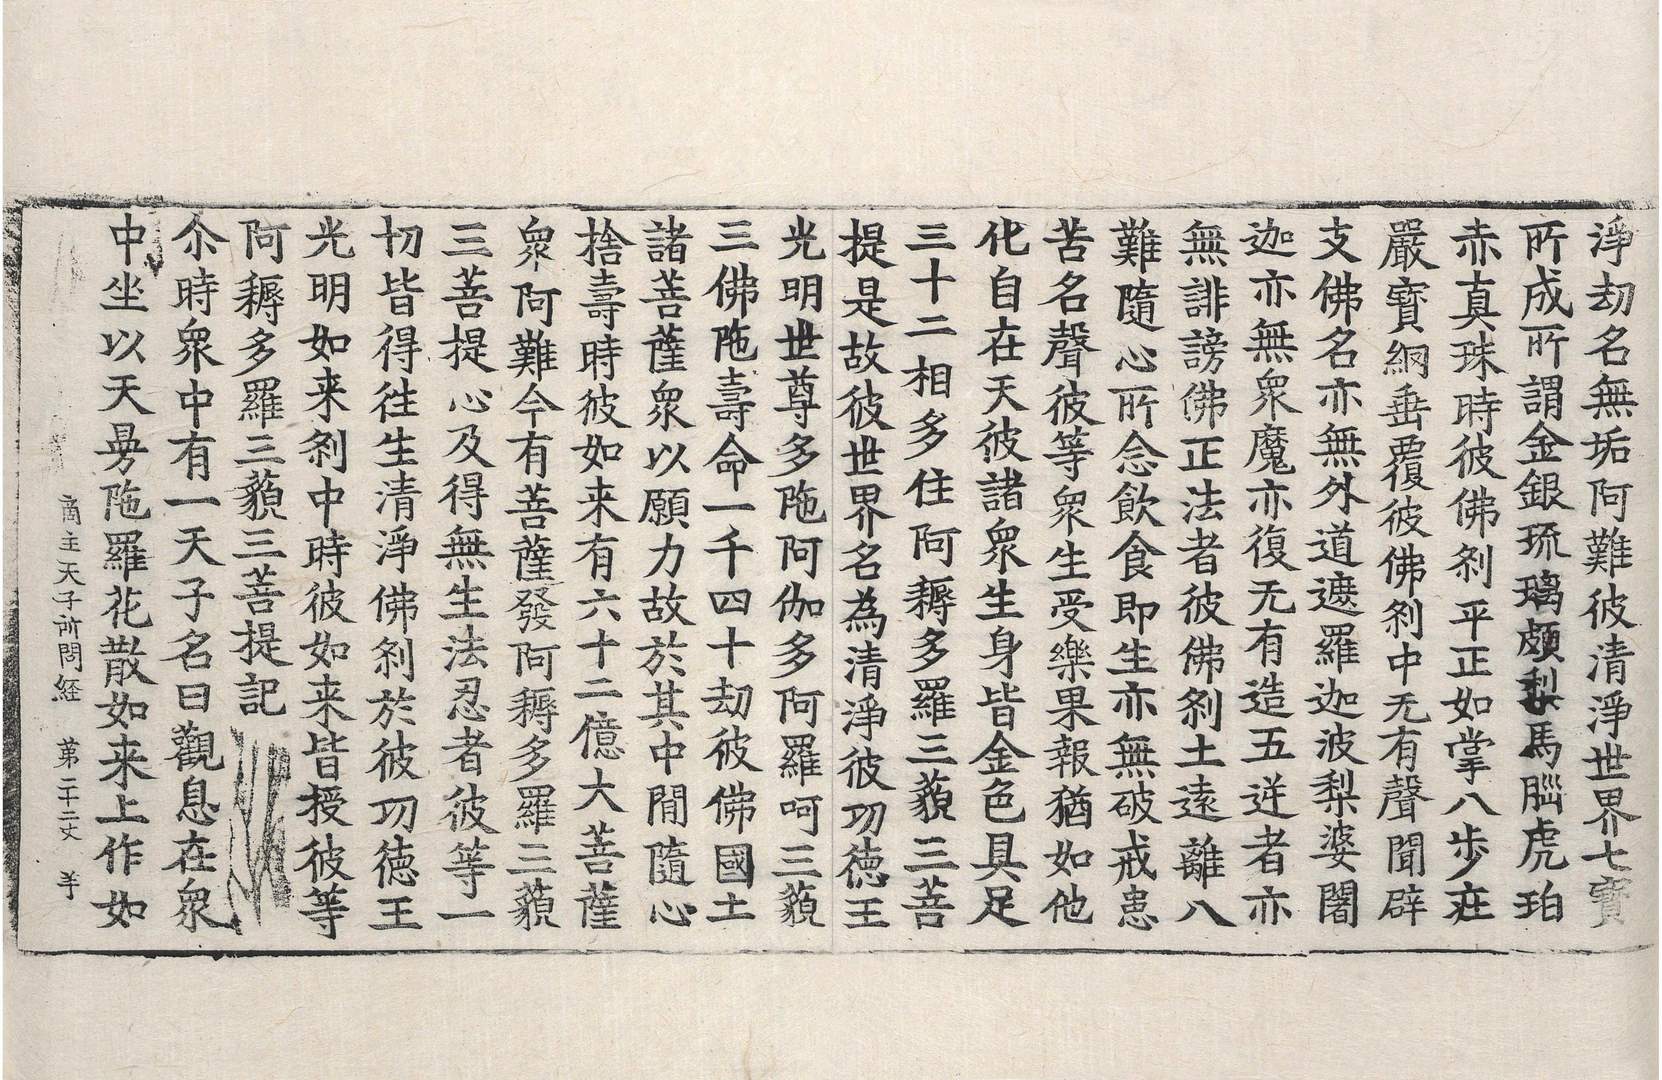 淨刧名無垢阿難彼清淨世界七寳
所成所謂金銀琉璃頗梨馬腦虎珀
赤真珠時彼佛刹平正如掌八步庄
嚴寳網垂覆彼佛刹中无有聲聞辟
支佛名亦無外道遮羅迦波梨婆闍
迦亦無衆魔亦復无有造五逆者亦
無誹謗佛正法者彼佛刹土遠離八
難隨心所念飲食即生亦無破戒恚
苦名聲彼等衆生受樂果報猶如他
化自在天彼諸衆生身皆金色具足
三十二相多住阿耨多羅三藐三菩
提是故彼世界名為清淨彼功徳王
光明世尊多陁阿伽多阿羅呵三藐
三佛陁壽命一千四十刧彼佛國土
諸菩薩衆以願力故於其中閒隨心
捨壽時彼如来有六十二億大菩薩
衆阿難今有菩薩發阿耨多羅三藐
三菩提心及得無生法忍者彼等一
切皆得往生清淨佛刹於彼功徳王
光明如来刹中時彼如来皆授彼等
阿耨多羅三藐三菩提記
尒時衆中有一天子名曰觀息在衆
中坐以天曼陁羅花散如来上作如
商主天子所問経 第二十二丈 羊